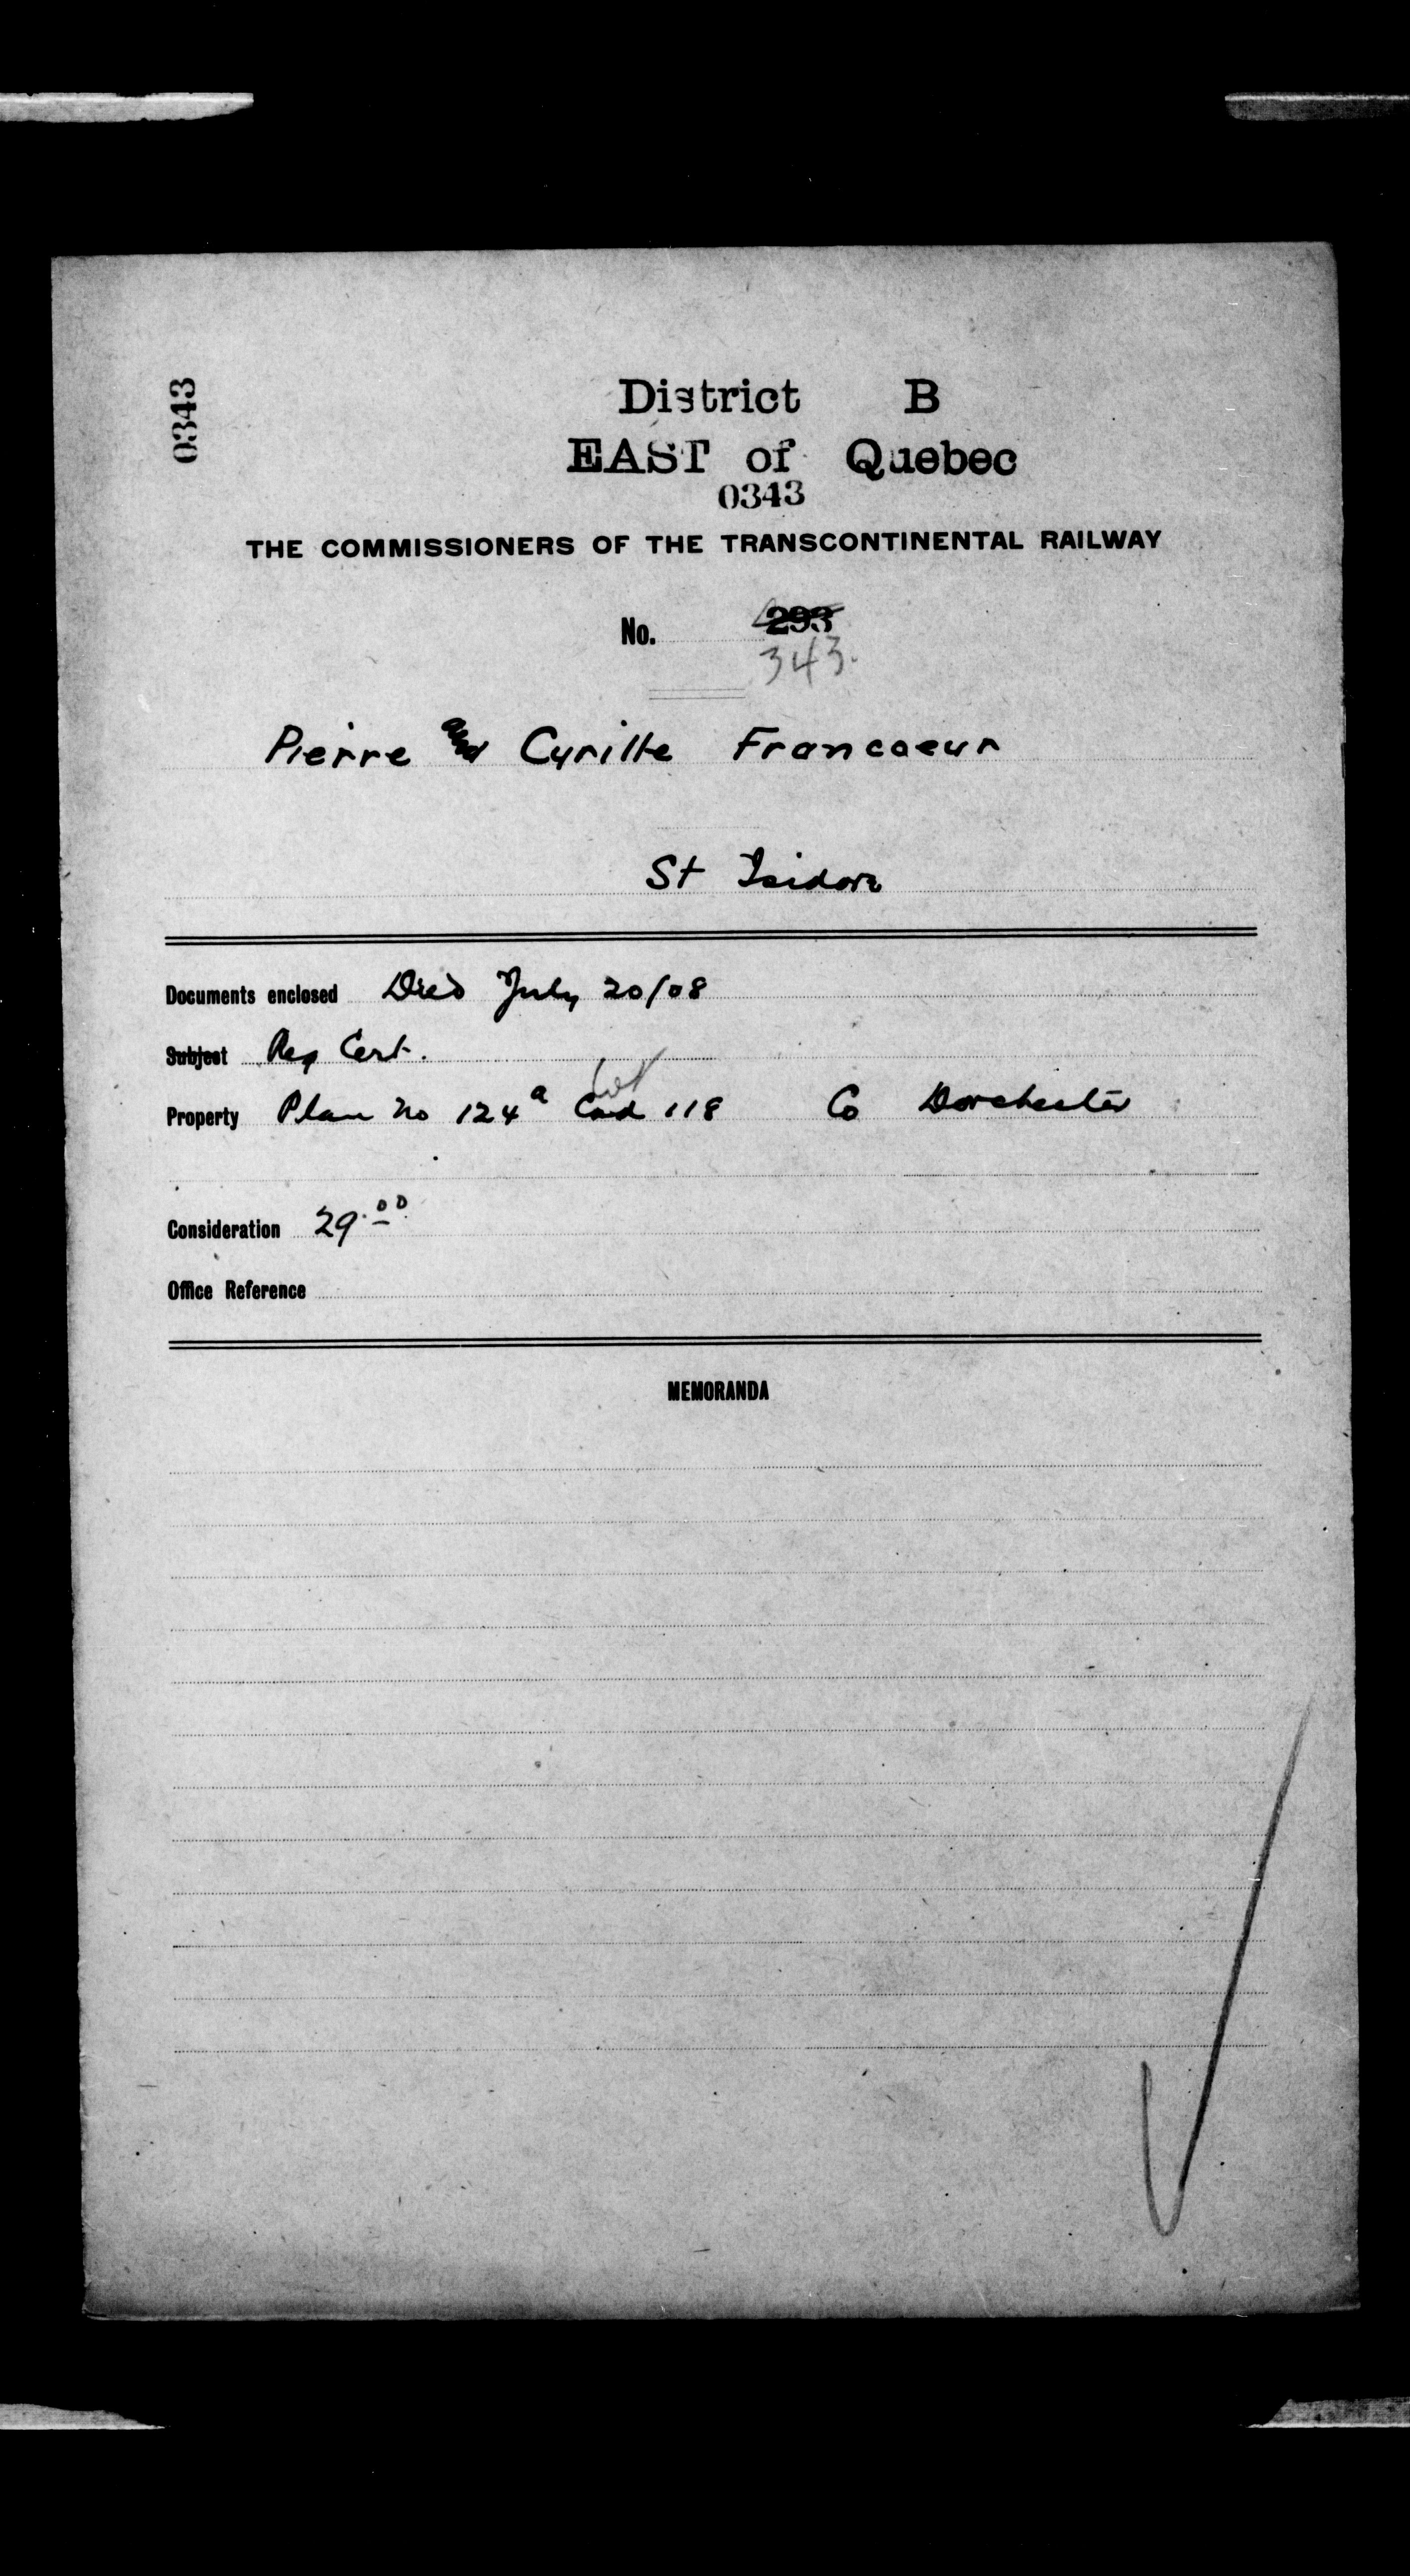 0343
District B
EAST of Quebec
0343
THE COMMISSIONERS OF THE TRANSCONTINENTAL RAILWAY
No. 293
343.
Pierre and Cyrille Francoeur
St Isidore
Documents enclosed Deed July 20/08
Subject Reg Cert.
Lot
Property Plan no 124a Cad 118 Co Dorchester
Consideration 29.00
Office Reference
MEMORANDA